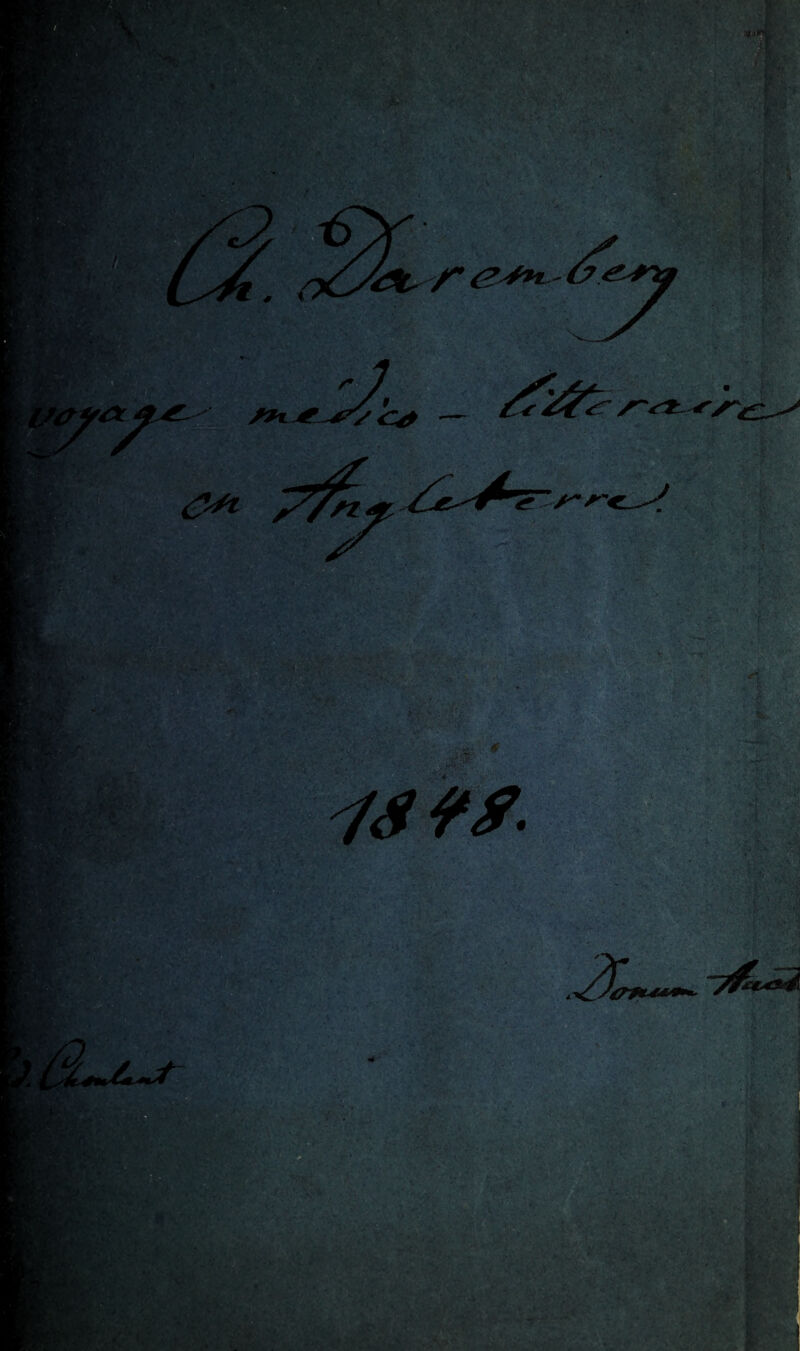 Ch. Daremberg
voyage médico - litteraire
en Angleterre.
1848.
Donum Auct
D. Choulant